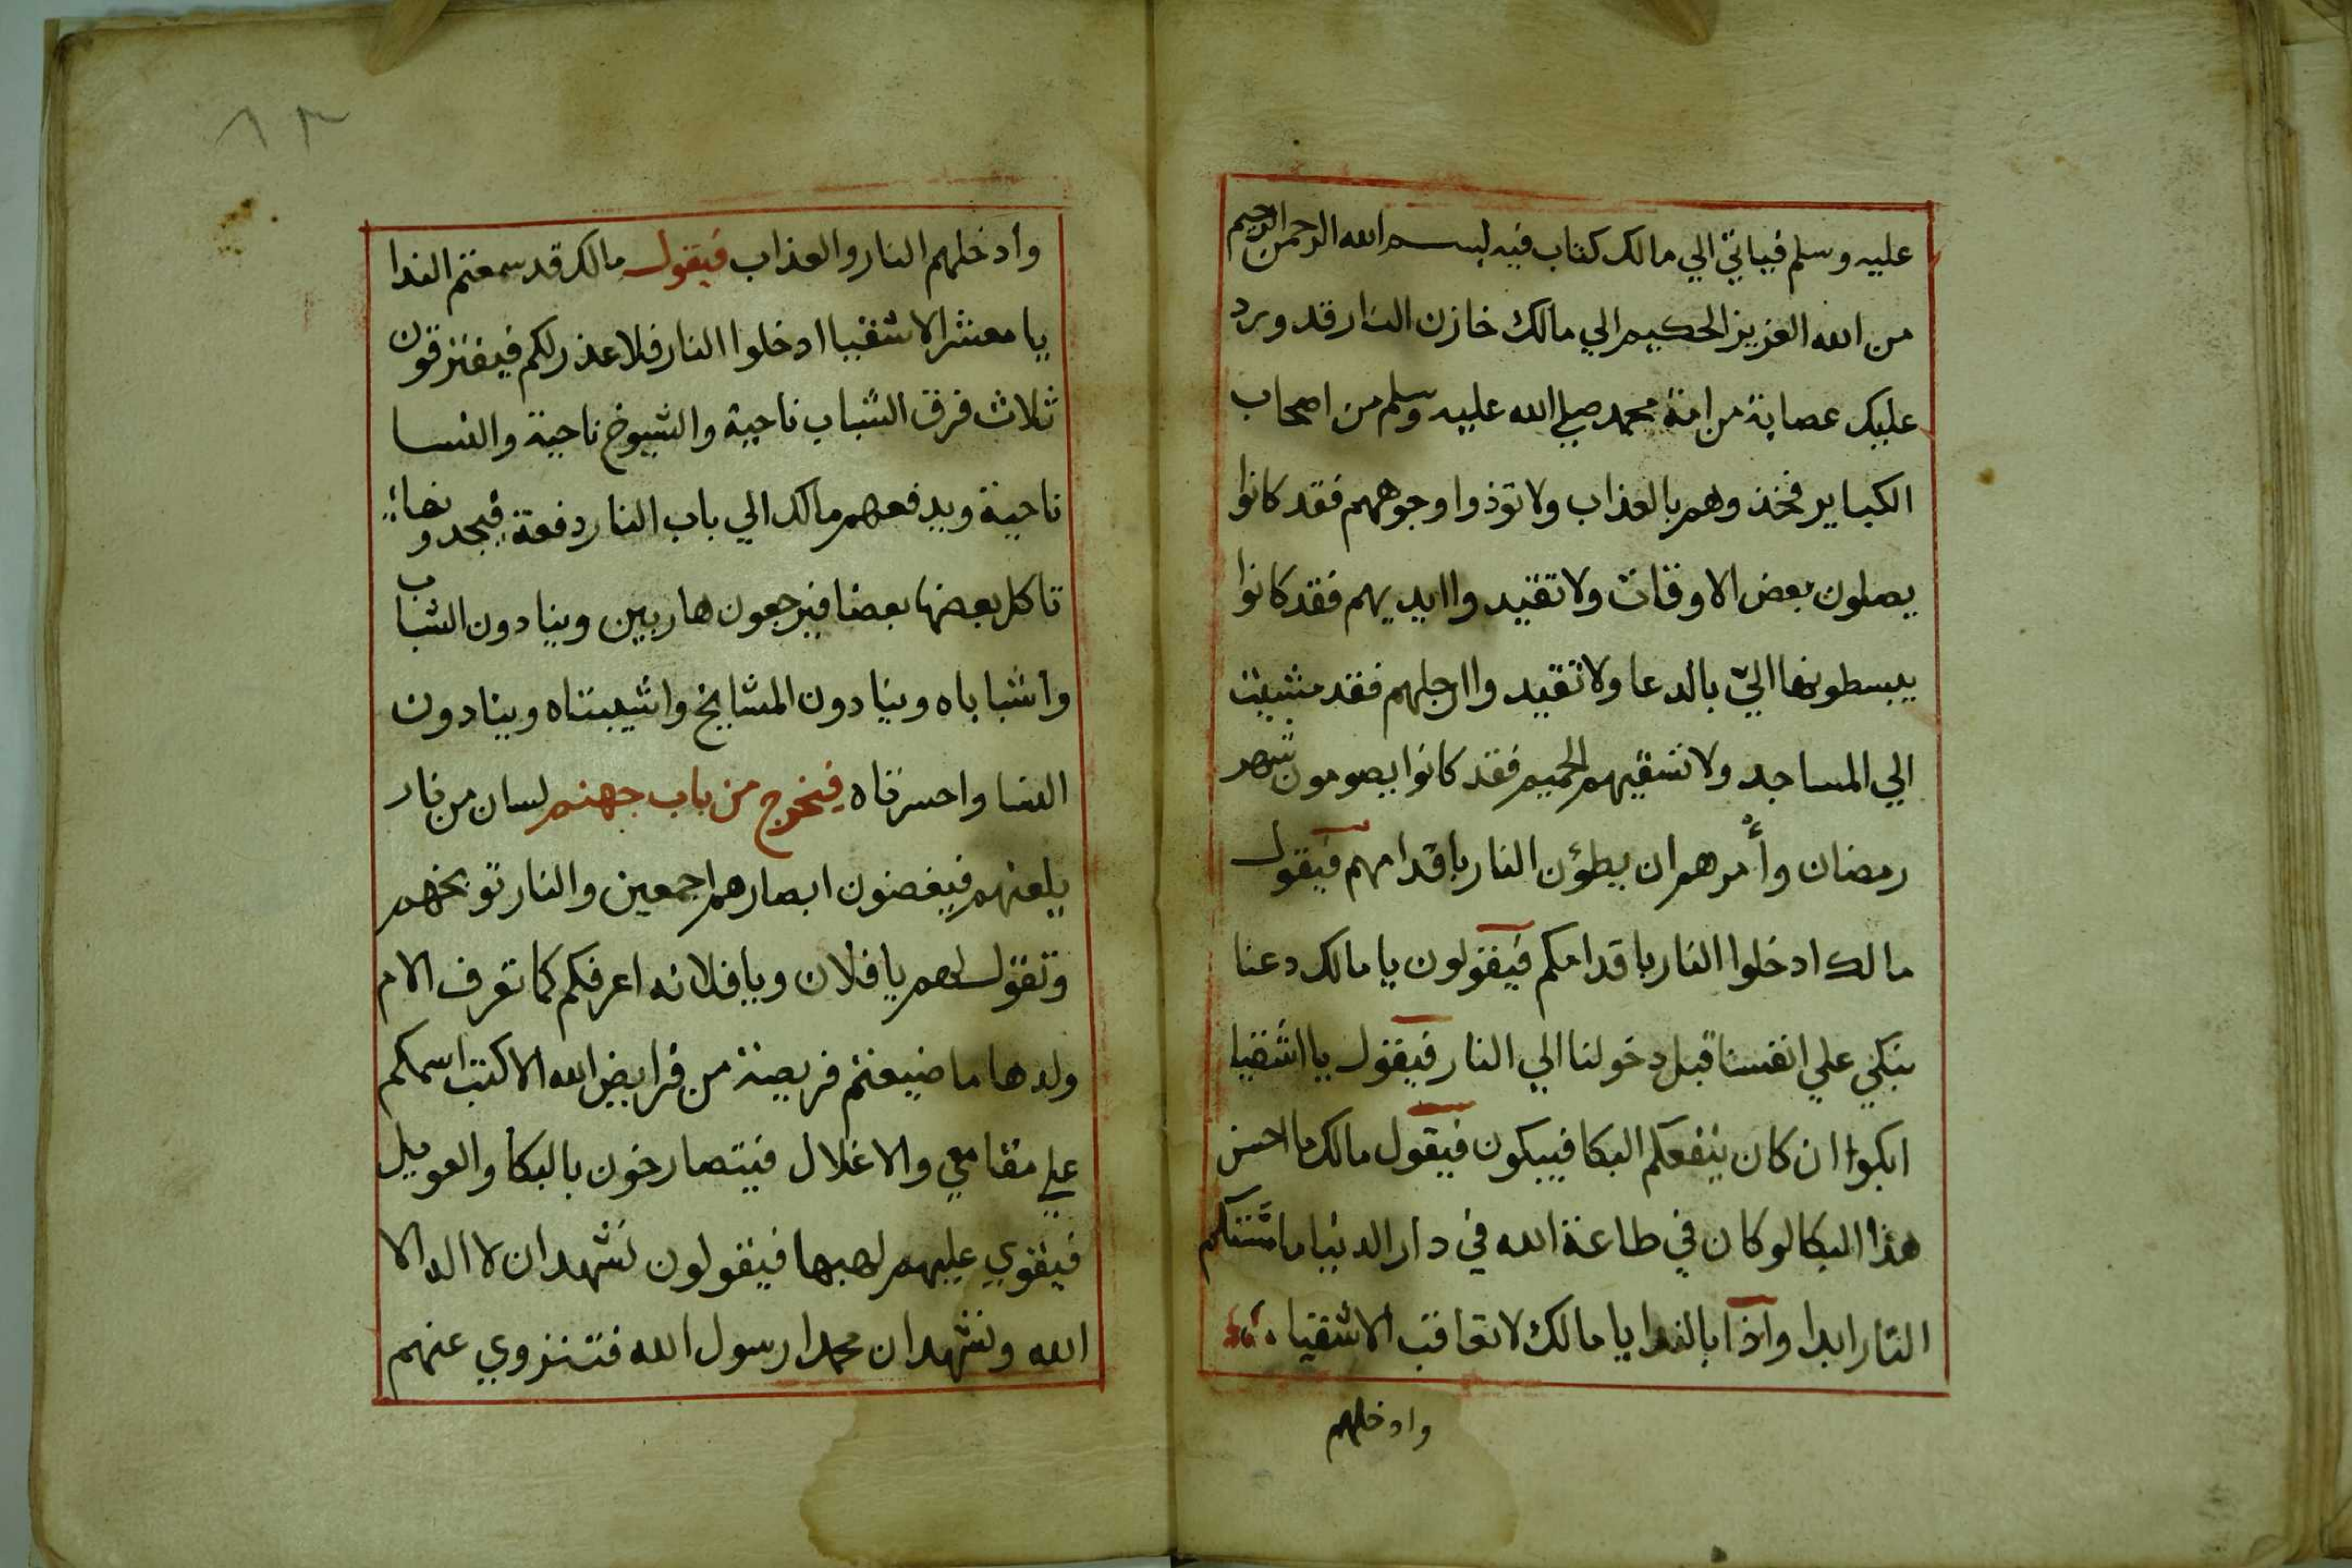 عليه وسلم فياتي الي مالك كتاب فيه بسم الله الرحمن الرحيم
من الله العزيز الحكيم الي مالك خازن النار قد ورد
عليك عصابة من امة محمد صلي الله عليه وسلم من اصحاب
الكباير فخذ وهم بالعذاب ولا توذوا وجوههم فقد كانوا
يصلون بعض الاوقات ولا تقيد واايديهم فقد كانوا
يبسطونها الي بالدعا ولا تقيد واارجلهم فقد مشيت
الي المساجد ولا تسقيهم الحميم فقد كانوا يصومون شهر
رمضان وأمرهم ان يطؤن النار باقدامهم فيقول
مالك ادخلوا النار باقدامكم فيقولون يا مالك دعنا
نبكي علي انفسنا قبل دخولنا الي النار فيقول يا اشقيا
ابكوا ان كان ينفعكم البكا فيبكون فيقول مالك ما احسن
هذا البكا لو كان في طاعة الله في دار الدنيا ما مستكم
النار ابدا واذا بالندا يا مالك لا تعاقب الاشقيا
وادخلهم
٨٣
وادخلهم النار والعذاب فيقول مالك قد سمعتم الندا
يا معشر الاشقيا ادخلوا النار فلا عذر لكم فيفترقون
ثلاث فرق الشباب ناحية والشيوخ ناحية والنسا
ناحية ويدفعهم مالك الي باب النار دفعة فيجدونها
تاكل بعضها بعضا فيرجعون هاربين وينادون الشباب
واشباباه وينادون المشايخ واشيبتاه وينادون
النسا واحسرتاه فيخرج من باب جهنم لسان من نار
يلعنهم فيغضون ابصارهم اجمعين والنار توبخهم
وتقول لهم يا فلان ويا فلانه اعرفكم كما تعرف الام
ولدها ما ضيعتم فريضة من فرايض الله الا كتب اسمكم
علي مقامعي والاغلال فيتصارخون بالبكا والعويل
فيقوي عليهم لهبها فيقولون نشهد ان لا اله الا
الله ونشهد ان محمدا رسول الله فتنزوي عنهم